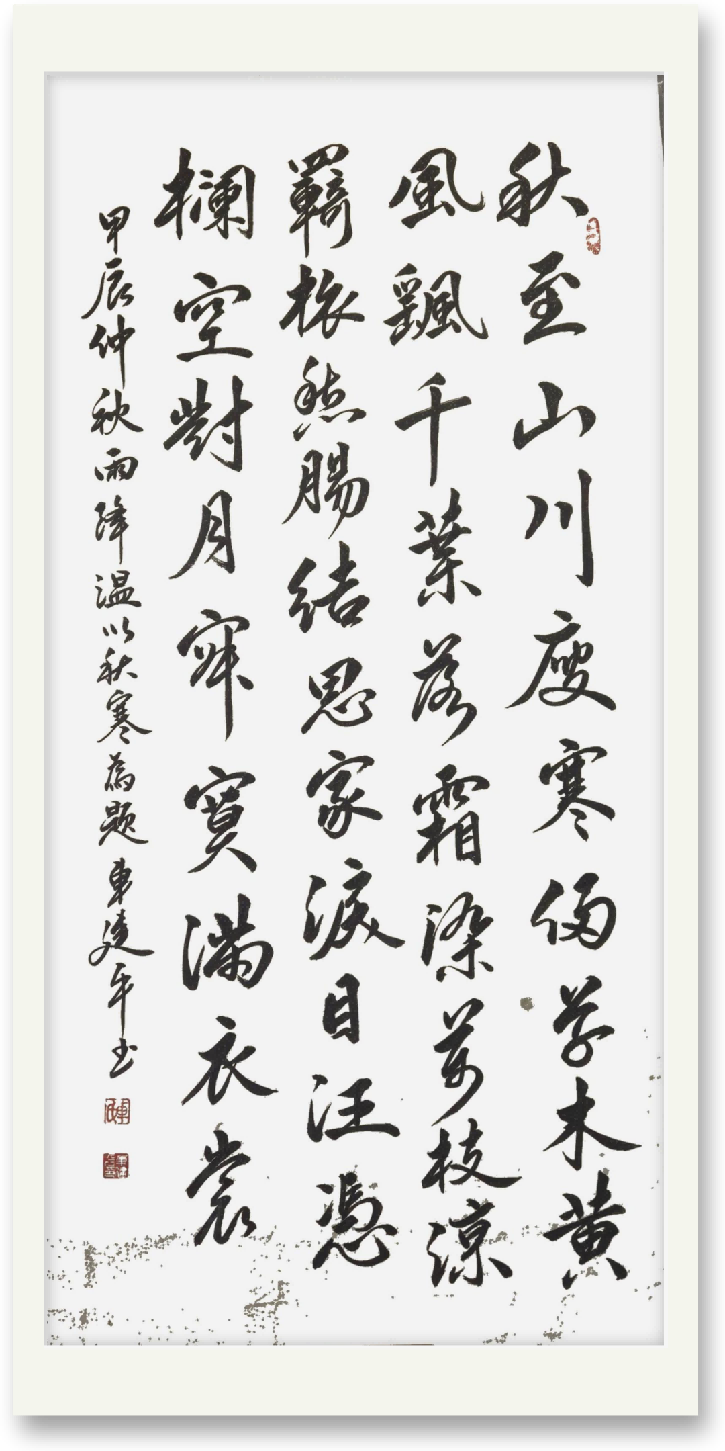 秋至山川瘦寒侵草木黄
風飄千葉落霜染萬枝涼
羇旅愁腸結思家淚目汪憑
欄空對月寂寞滿衣裳
甲辰仲秋雨降温以秋寒為題車建平书